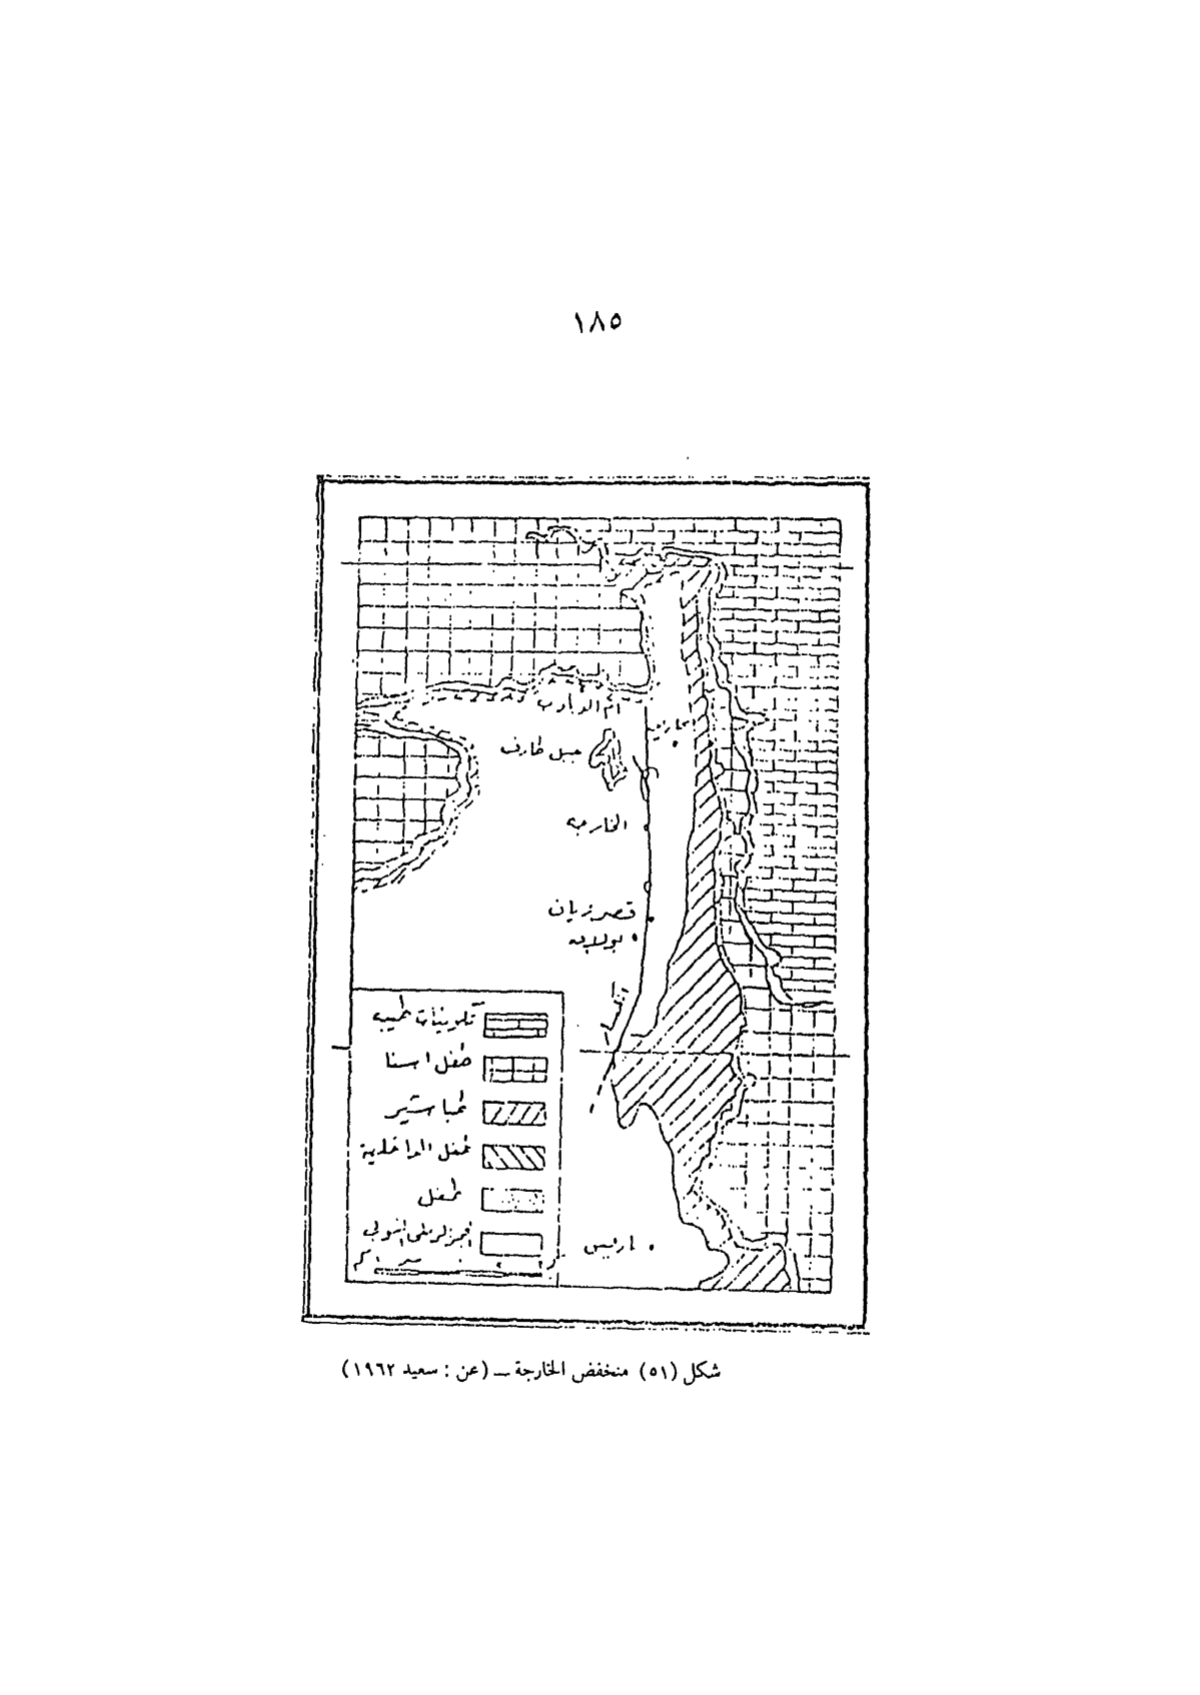 ١٨٥
أم الدبادب
جبل طارف
الخارجه
قصر زيان
بولاق
باريس
تكوينات طيبه
طفل اسنا
طباشير
طفل الداخلية
طفل
شكل (٥١) منخفض الخارجة ـــ (عن : سعيد ١٩٦٢)